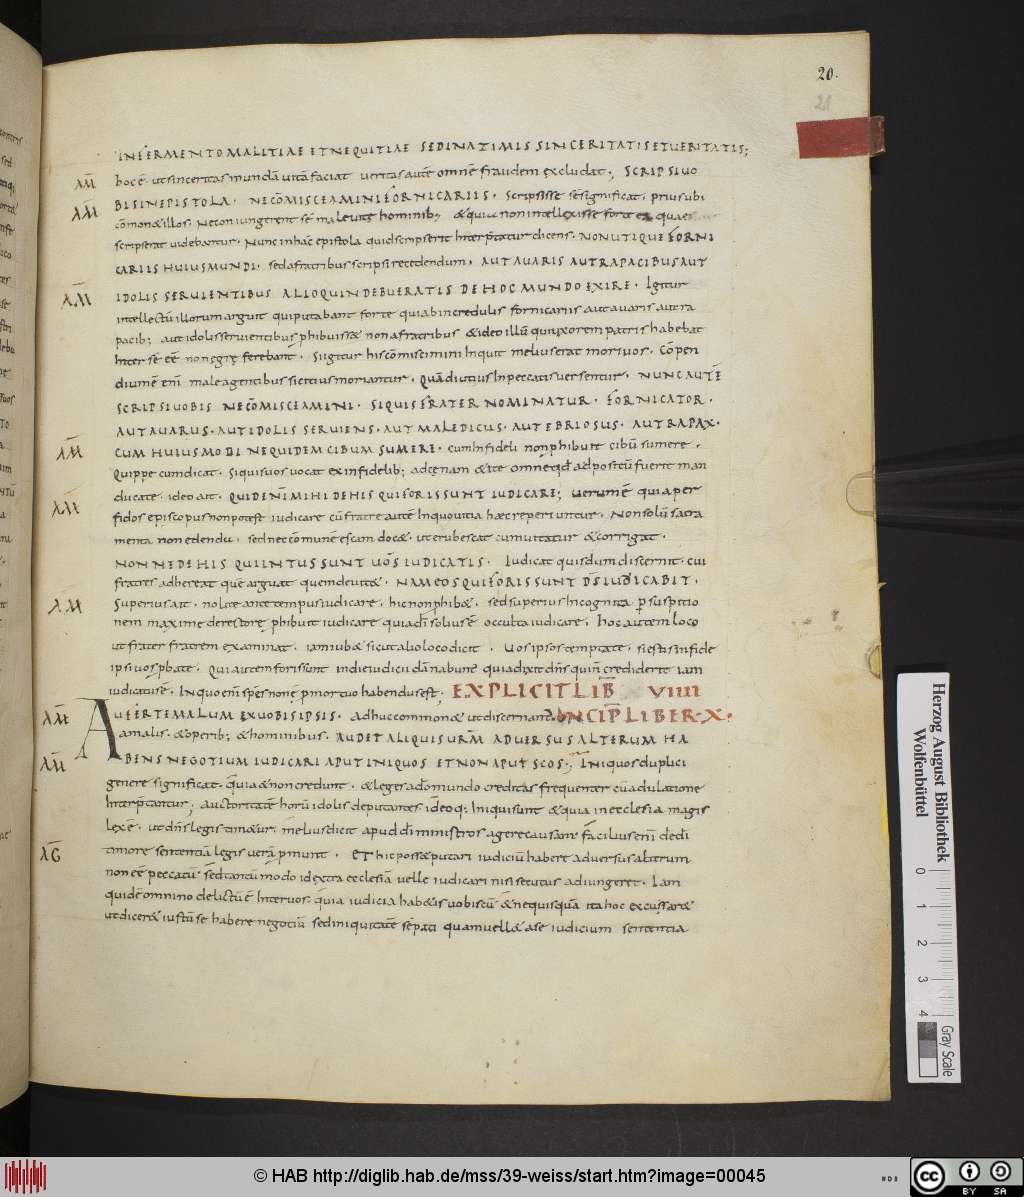 20.
21
INFERMENTO MALITIAE ET NEQUITIAE SED IN AZIMIS SINCERITATIS ET UERITATIS;
AM̄ hoc ē ut sinceritas mundā uitā faciat ueritas autē omnē fraudem excludat; SCRIPSI UO
AM̄ BIS IN EPISTOLA. NE CŌMISCEAMINI FORNICARIIS. Scripsisse se significat, prius ubi
cōmonet illos. Ne coniungerent se maleuitę hominib; et quia non intellexisse forte ea quae
scripserat uidebantur. Nunc in hac epistola quid scripserit interp̄tatur dicens. NON UTIQUE FORNI
CARIIS HUIUS MUNDI. sed a fratribus scripsi recedendum. AUT AUARIS AUT RAPACIBUS AUT
AM̄ IDOLIS SERUIENTIBUS ALIOQUIN DEBUERATIS DE HOC MUNDO EXIRE. Igitur
intellectū illorum arguit qui putabant forte quia ab incredulis fornicariis aut auaris aut ra
pacib; aut idolis seruientibus phibuisset non a fratribus et ideo illū qui uxorem patris habebat
inter se eē non egrę ferebant. Si igitur his cōmiscimini inquit melius erat mori uos. Cōpen
diū mē enī male agentibus si citius moriantur. quā diutius in peccatis uersentur. NUNC AUTĒ
SCRIPSI UOBIS NE CŌMISCEAMINI. SI QUIS FRATER NOMINATUR. FORNICATOR.
AUT AUARUS. AUT IDOLIS SERUIENS. AUT MALEDICUS. AUT EBRIOSUS. AUT RAPAX.
AM̄ CUM HUIUSMODI NE QUIDEM CIBUM SUMERE. cum infideli non phibuit cibū sumere.
Quippe cum dicat. si quis uos uocat ex infidelib; ad cęnam et ite omne qd adpositū fuerit man
AM̄ ducate. ideo ait. QUID ENĪ MIHI DE HIS QUI FORIS SUNT IUDICARE; uerum ē quia per
fidos episcopus non potest iudicare cū fratre autē in quo uitia haec reperiuntur. Non solū sacra
menta non edendū. sed nec cōmunē escam docet. ut erubescat cum uitatur et corrigat.
NONNE DE HIS QUI INTUS SUNT UOS IUDICATIS. Iudicat quis dum discernit. cui
fratris adhereat quē arguat quem deuitet. NAM EOS QUI FORIS SUNT D̄S IUDICABIT.
AM Superius ait. nolite ante tempus iudicare. hic non phibet. sed superius incognita p̱ suspitio
nem maxime de restorę phibuit iudicare quia dī solius ē occulta iudicare. hoc autem loco
ut frater fratrem examinat. iam iubet sicut alio loco dicit. Uos ipsos temptate. si estis in fide
ipsi uos pbate. Qui autem foris sunt in die iudicii dānabunt quia dixit dn̄s qui n̄ crediderit iam
iudicatus ē. In quo enī spes non ē p̱ mortuo habendus est; EXPLICIT LIB̄ VIIII
AM̄ AUFERTE MALUM EX UOBIS IPSIS. Adhuc commonet ut discernant INCIP̄ LIBER. X.
a malis. et operib; et hominibus. AUDET ALIQUIS URM̄ ADUERSUS ALTERUM HA
AM̄ BENS NEGOTIUM IUDICARI APUT INIQUOS ET NON APUT SCOS; Iniquos duplici
genere significat. quia et non credunt. et leges ad mundo creditas frequenter cū adulatione
interp̄tantur; auctoritatē horū idolis deputantes ideoq; iniqui sunt et quia in ecclesia magis
lex ē. ut dn̄s legis timetur. melius dicit apud dī ministros agere causam facilius enī dei di
AG̅ timore sententiā legis uerā p̱munt. ET hic posset putari iudiciū habere aduersus alterum
non eē peccatū sed tantū modo id extra ecclesiā uelle iudicari nisi secutus adiungeret. Iam
quidē omnino delictū ē inter uos. quia iudicia habetis uobiscū et ne quisquā ita hoc excussaret
ut diceret iustū se habere negotiū sed iniquitatē se pati quam uellet a se iudicium sententia
Herzog August Bibliothek
Wolfenbüttel
0 1 2 3 4
Gray Scale
© HAB http://diglib.hab.de/mss/39-weiss/start.htm?image=00045
cc BY SA